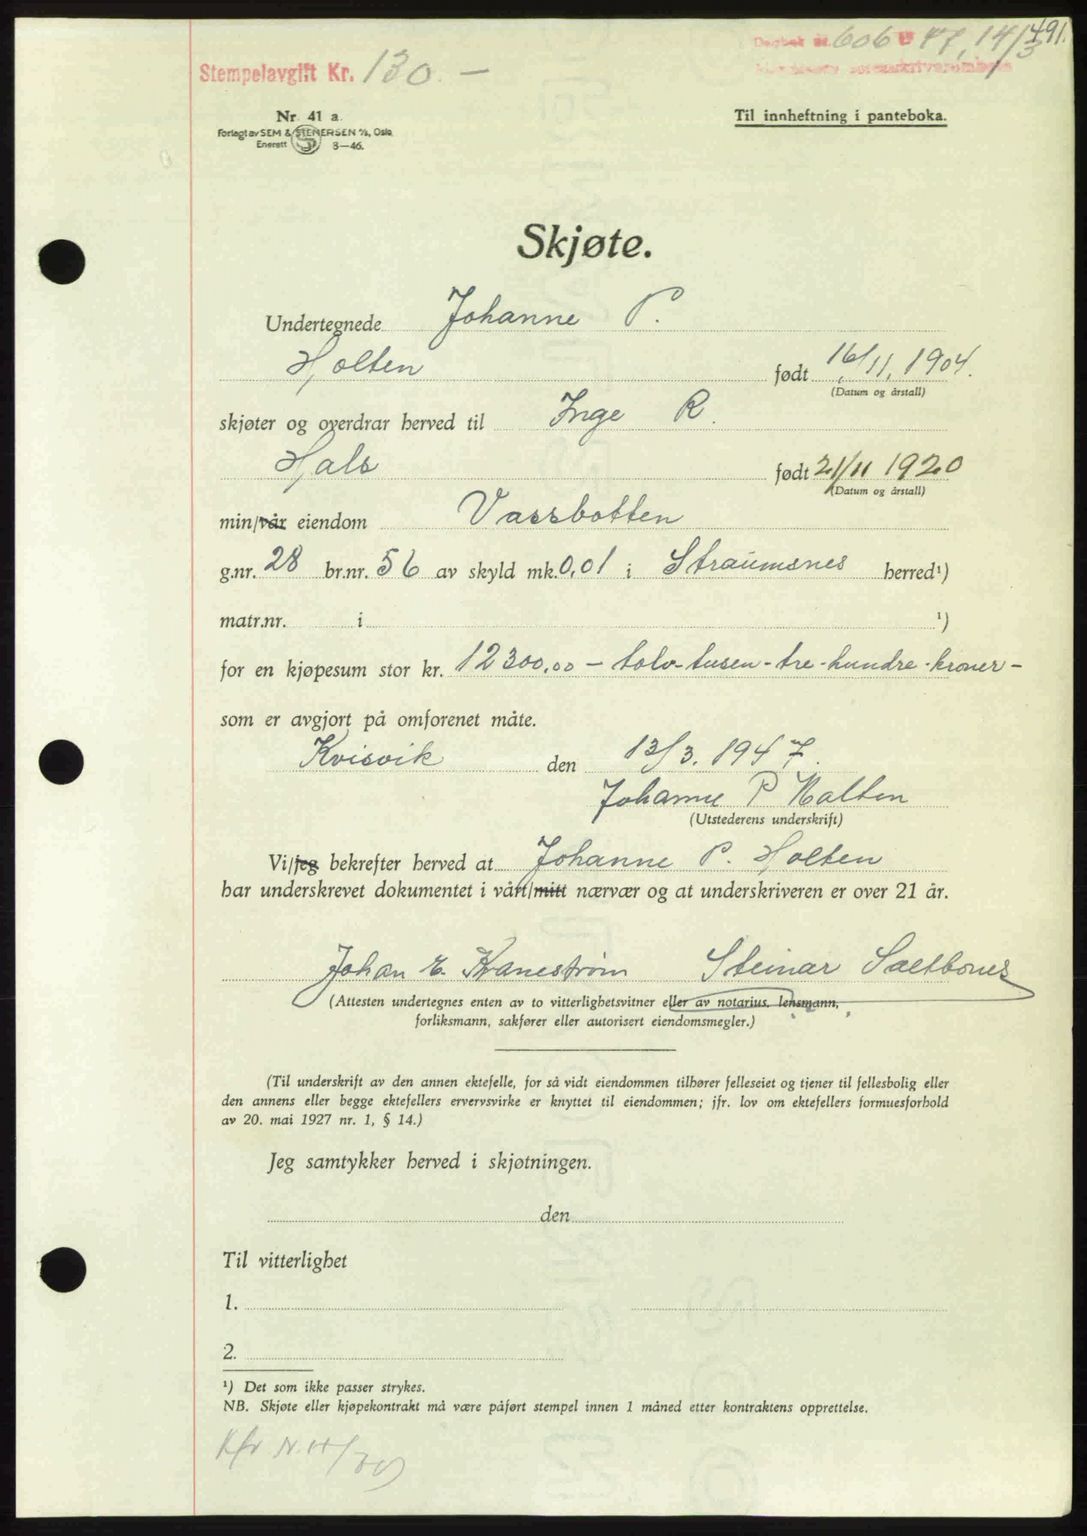 491.
Dagbok nr. 606 19 47, 14/3
Stempelavgift Kr. 130 —
Nr. 41 a.
Til innheftning i panteboka.
Forlagt av SEM & STENERSEN A/S, Oslo
Enerett S 8—46.
Skjøte.
Undertegnede Johanne P.
Holten født 16/11, 1904.
(Datum og årstall)
skjøter og overdrar herved til Inge R.
Hals født 21/11 1920
(Datum og årstall)
min/vår eiendom Vassbotten
g.nr. 28 br.nr. 56 av skyld mk. 0,01 i Straumsnes herred¹)
matr.nr. i ¹)
for en kjøpesum stor kr. 12300,00 — tolv-tusen-tre-hundre-kroner —
som er avgjort på omforenet måte.
Kvisvik den 13/3. 1947.
Johanne P Holten
(Utstederens underskrift)
Vi/jeg bekrefter herved at Johanne P. Holten
har underskrevet dokumentet i vårt/mitt nærvær og at underskriveren er over 21 år.
Johan E. Kranestrøm Steinar Saltbones
(Attesten undertegnes enten av to vitterlighetsvitner eller av notarius, lensmann,
forliksmann, sakfører eller autorisert eiendomsmegler.)
(Til underskrift av den annen ektefelle, for så vidt eiendommen tilhører felleseiet og tjener til fellesbolig eller
den annens eller begge ektefellers ervervsvirke er knyttet til eiendommen; jfr. lov om ektefellers formuesforhold
av 20. mai 1927 nr. 1, § 14.)
Jeg samtykker herved i skjøtningen.
den
Til vitterlighet
1.
2.
¹) Det som ikke passer strykes.
NB. Skjøte eller kjøpekontrakt må være påført stempel innen 1 måned etter kontraktens opprettelse.